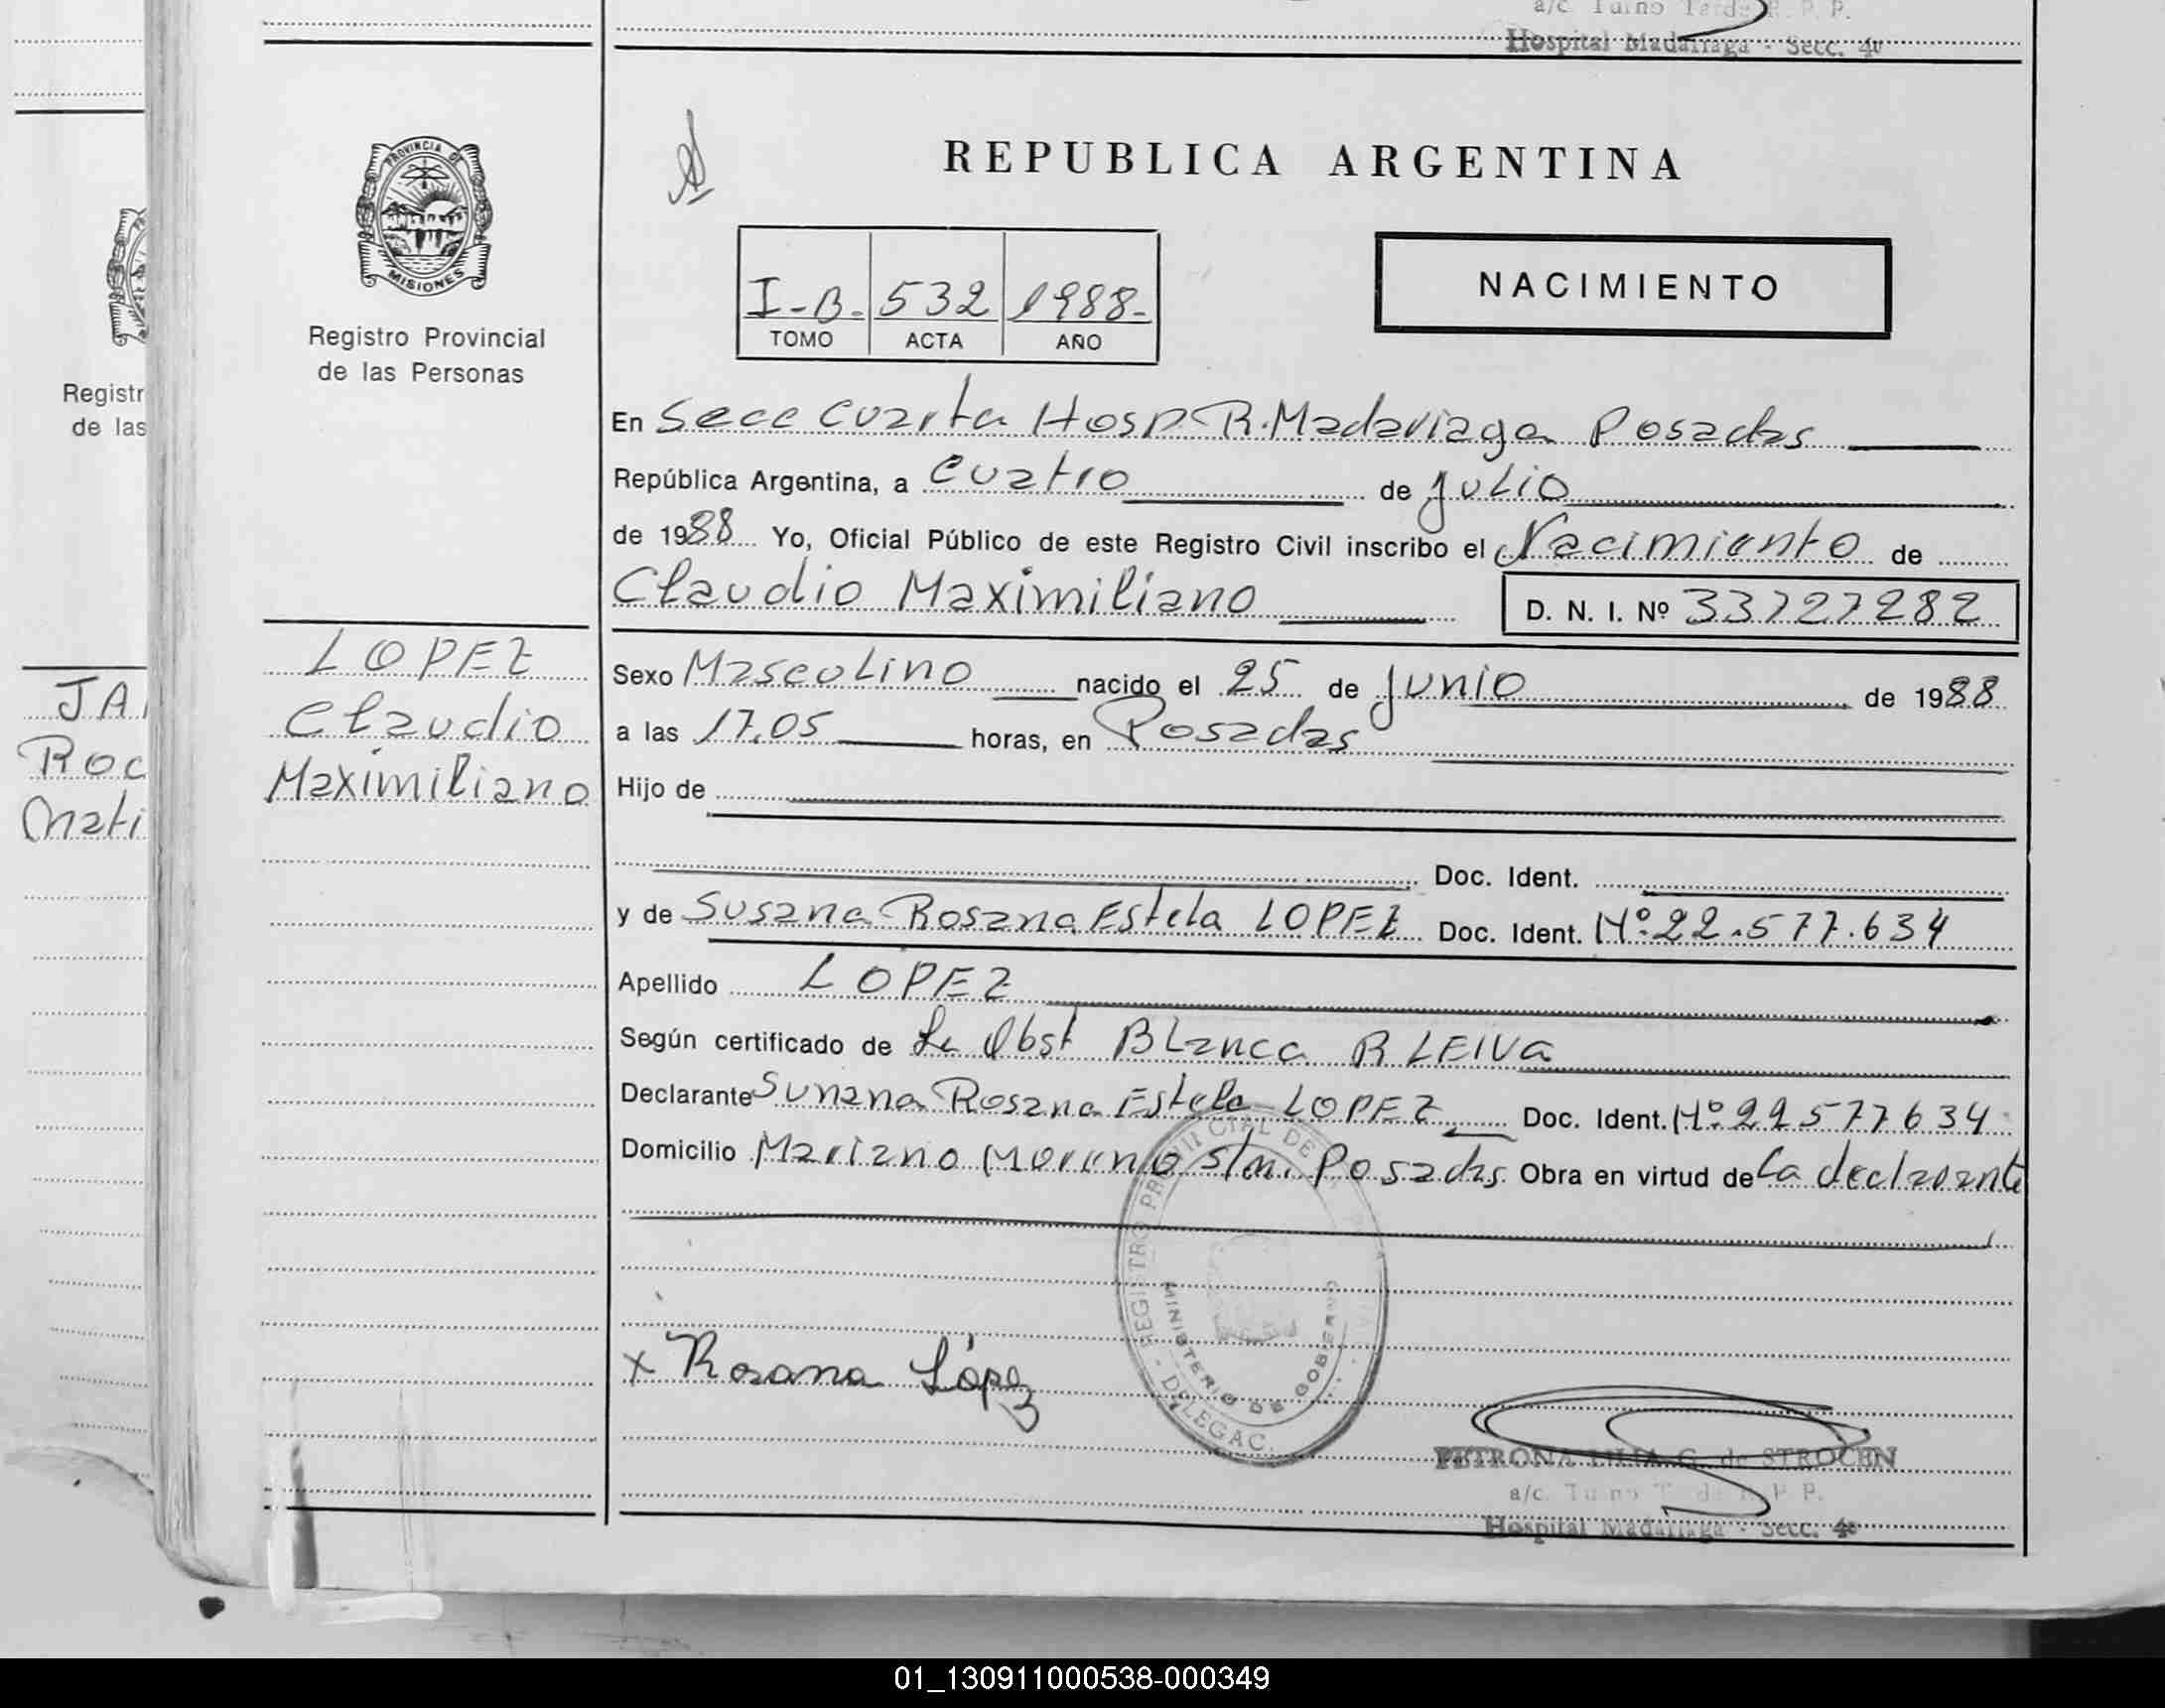 a/c Turno Tarde R. P. P.
Hospital Madariaga - Secc. 4ta
PROVINCIA DE
MISIONES
Registro Provincial
de las Personas
Registr
de las
REPUBLICA ARGENTINA
I-B- 532 1988-
TOMO ACTA AÑO
NACIMIENTO
En Secc Cuarta Hosp R. Madariaga Posadas
República Argentina, a Cuatro de Julio
de 1988 Yo, Oficial Público de este Registro Civil inscribo el Nacimiento de
Claudio Maximiliano D. N. I. Nº 33727282
LOPEZ
Claudio
Maximiliano
JA
Roc
Mati
Sexo Masculino nacido el 25 de Junio de 1988
a las 17.05 horas, en Posadas
Hijo de
Doc. Ident.
y de Susana Rosana Estela LOPEZ Doc. Ident. Nº 22.577.634
Apellido LOPEZ
Según certificado de La Obst Blanca R LEIVA
Declarante Sunana Rosana Estela LOPEZ Doc. Ident. Nº 22577634
Domicilio Mariano Moreno s/n. Posadas Obra en virtud de la declarante
REGISTRO PROVINCIAL DE
MINISTERIO DE GOBIERNO
DELEGAC.
x Rosana López
PETRONA LILIA G. de STROCEN
a/c Turno T de R. P. P.
Hospital Madariaga - Secc. 4ta
01_130911000538-000349